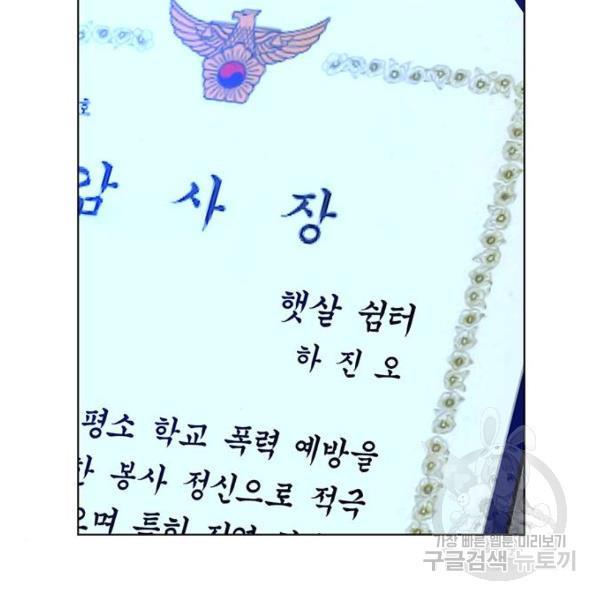 호
암 사 장
햇살 쉼터
하 진 오
평소 학교 폭력 예방을
한 봉사 정신으로 적극
으며 특히 지역
가장 빠른 웹툰 미리보기
구글검색 뉴토끼